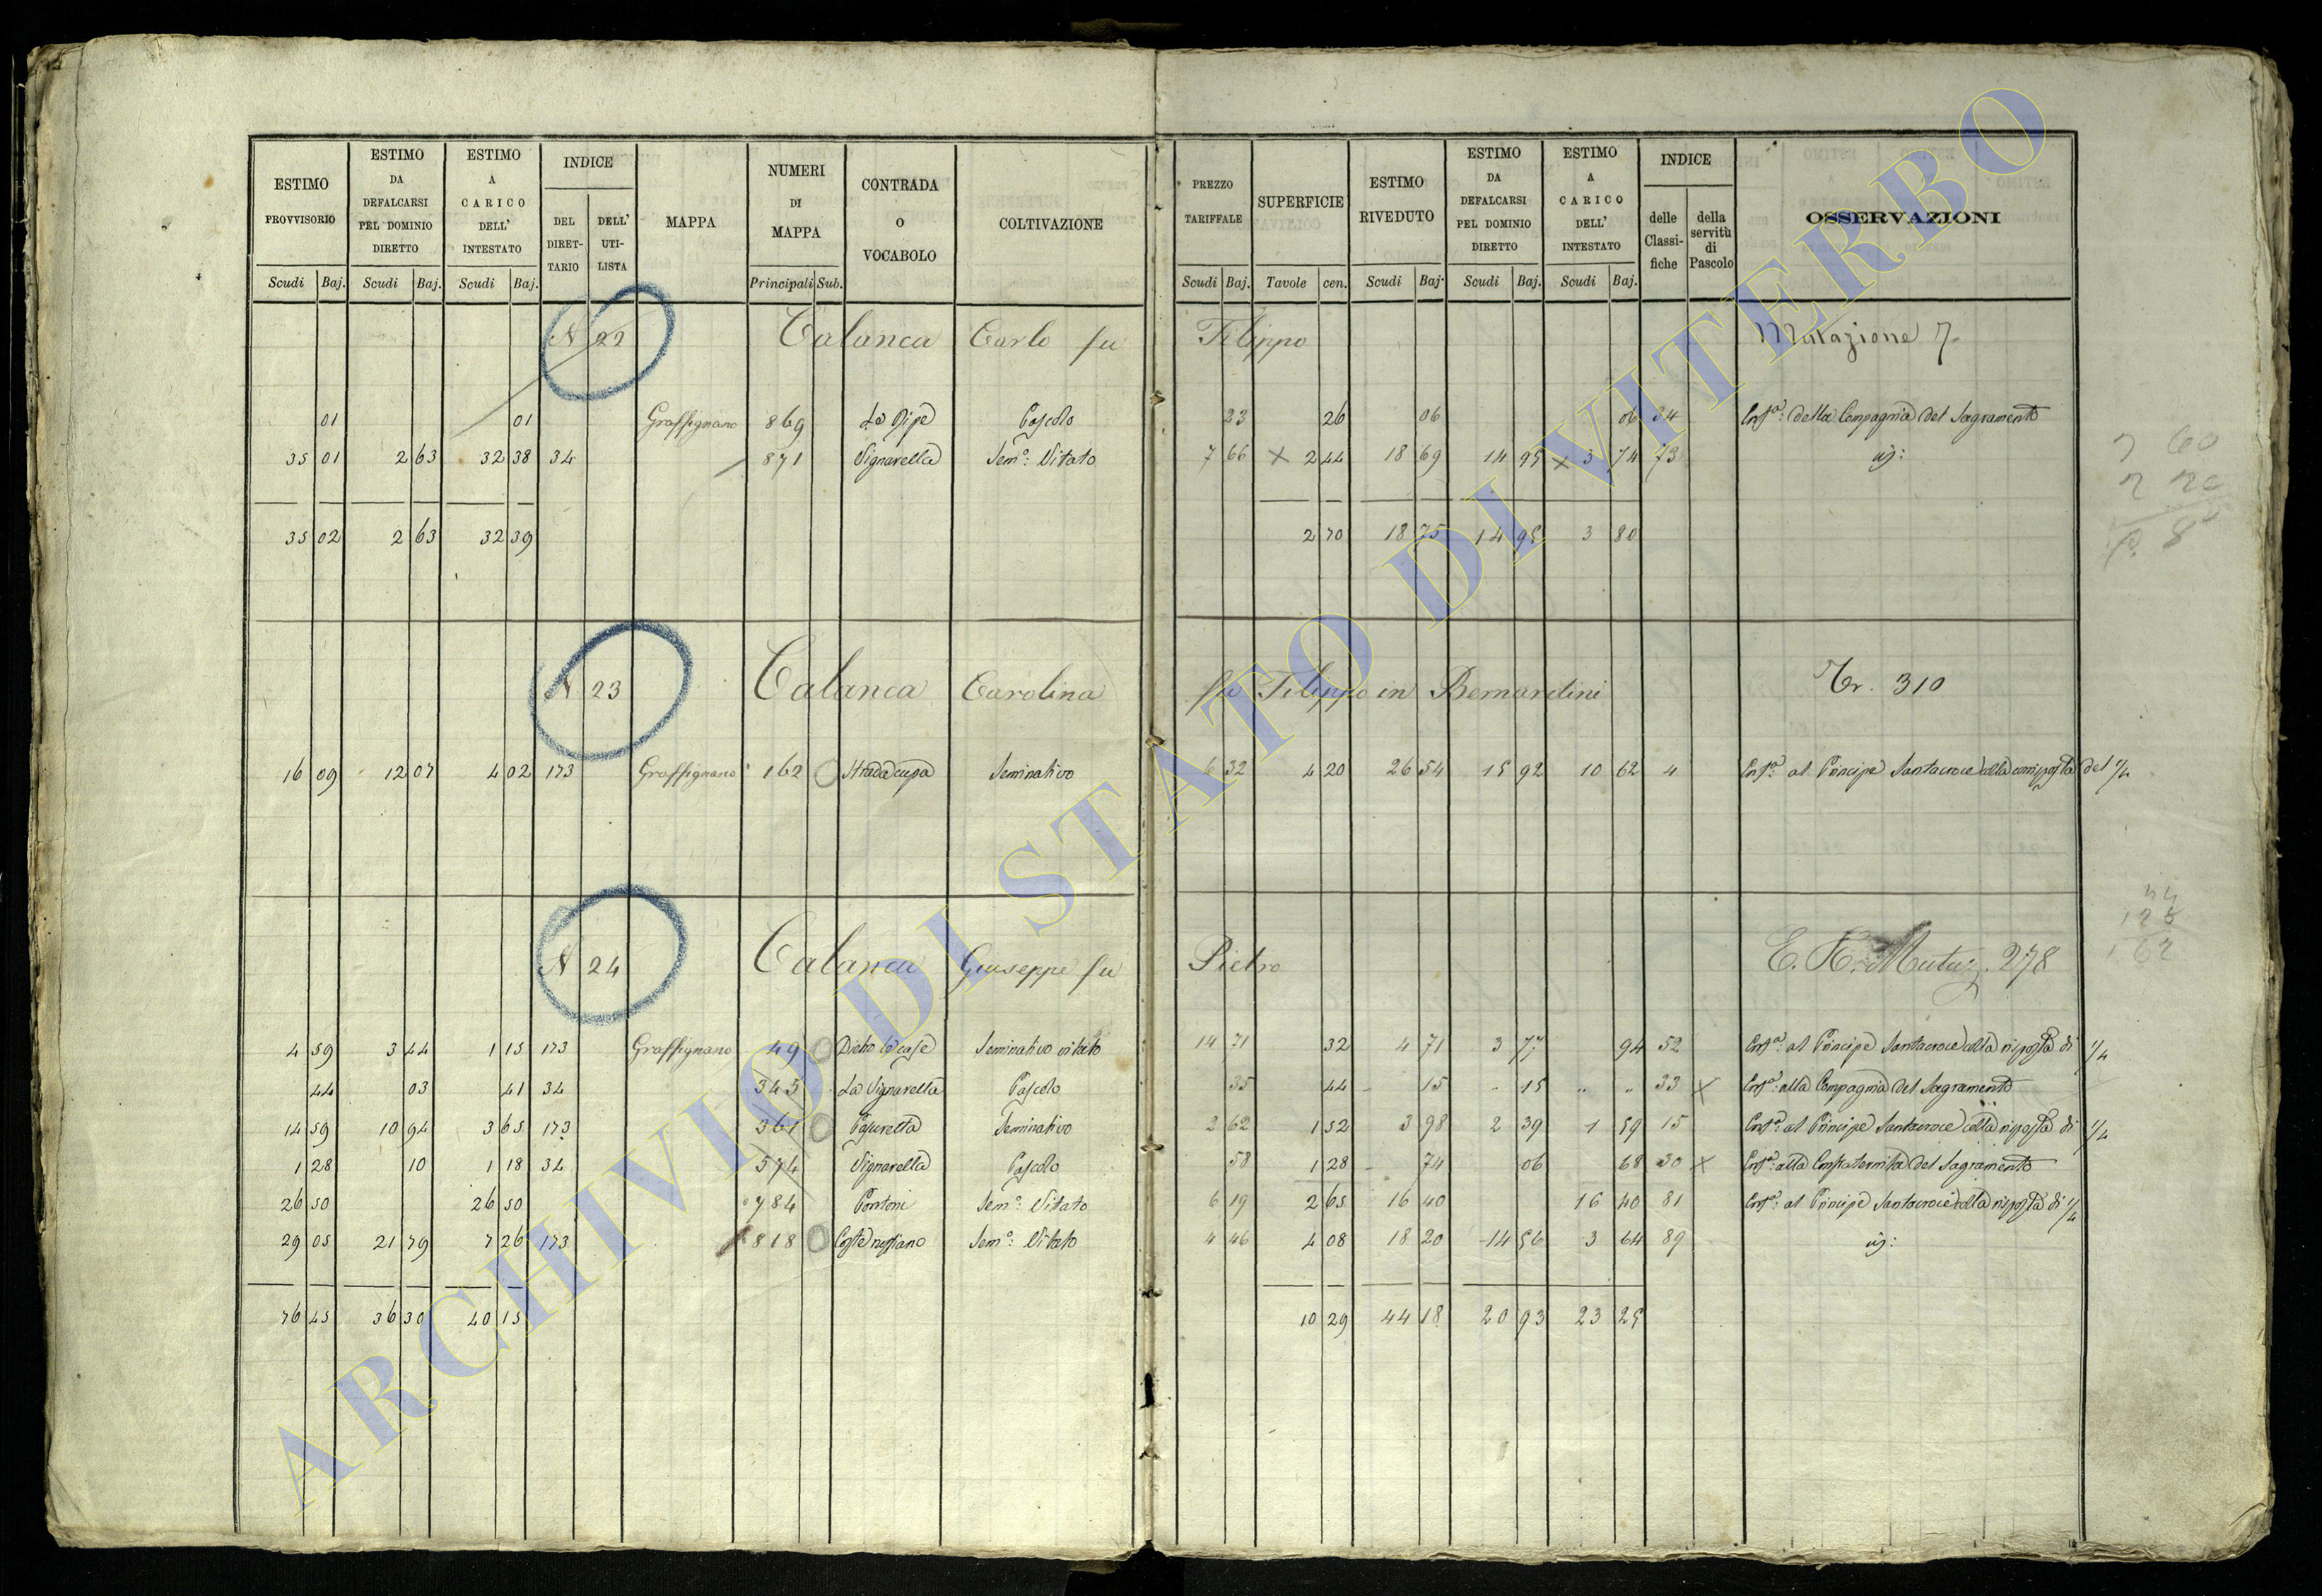 ESTIMO PROVVISORIO | ESTIMO DA DEFALCARSI PEL DOMINIO DIRETTO | ESTIMO A CARICO DELL' INTESTATO | INDICE | MAPPA | NUMERI DI MAPPA | CONTRADA O VOCABOLO | COLTIVAZIONE | PREZZO TARIFFALE | SUPERFICIE | ESTIMO RIVEDUTO | ESTIMO DA DEFALCARSI PEL DOMINIO DIRETTO | ESTIMO A CARICO DELL' INTESTATO | INDICE | OSSERVAZIONI
DEL DIRET-TARIO | DELL' UTI-LISTA | delle Classi-fiche | della servitù di Pascolo
Scudi | Baj. | Scudi | Baj. | Scudi | Baj. | Principali | Sub. | Scudi | Baj. | Tavole | cen. | Scudi | Baj. | Scudi | Baj. | Scudi | Baj.
N 22 Calanca Carlo fu Filippo Mutazione 7.
01 | 01 | Graffignano | 869 | La Ripe | Pascolo | 23 | 26 | 06 | 06 | 34 | Enf.a: della Compagnia del Sagramento
35 01 | 2 63 | 32 38 | 34 | 871 | Vignarella | Sem.o: Vitato | 7 66 | X 2 44 | 18 69 | 14 95 | X 3 74 | 73 | id:
35 02 | 2 63 | 32 39 | 2 70 | 18 75 | 14 95 | 3 80
N 23 Calanca Carolina fu Filippo in Bernardini Tr. 310
16 09 | 12 07 | 4 02 | 173 | Graffignano | 162 | Strada cupa | Seminativo | 6 32 | 4 20 | 26 54 | 15 92 | 10 62 | 4 | Enf.a: al Principe Santacroce colla corrisposta del 1/4
N 24 Calanca Giuseppe fu Pietro Mutaz. 278
4 59 | 3 44 | 1 15 | 173 | Graffignano | 49 | Dietro le case | Seminativo vitato | 14 71 | 32 | 4 71 | 3 77 | 94 | 52 | Enf.a: al Principe Santacroce colla risposta di 1/4
44 | 03 | 41 | 34 | 345 | La Vignarella | Pascolo | 35 | 44 | 15 | 15 | " | " | 33 | X | Enf.a: alla Compagnia del Sagramento
14 59 | 10 94 | 3 65 | 173 | 361 | Casuretta | Seminativo | 2 62 | 1 52 | 3 98 | 2 39 | 1 59 | 15 | Enf.a: al Principe Santacroce colla risposta di 1/4
1 28 | 10 | 1 18 | 34 | 574 | Vignarella | Pascolo | 58 | 1 28 | 74 | 06 | 68 | 30 | X | Enf.a: alla Confraternita del Sagramento
26 50 | 26 50 | 784 | Pontoni | Sem.o: Vitato | 6 19 | 2 65 | 16 40 | 16 40 | 81 | Enf.a: al Principe Santacroce colla risposta di 1/4
29 05 | 21 79 | 7 26 | 173 | 818 | Sem.o: Vitato | 4 46 | 4 08 | 18 20 | 14 56 | 3 64 | 89 | id:
76 45 | 36 30 | 40 15 | 10 29 | 44 18 | 20 93 | 23 25
ARCHIVIO DI STATO DI VITERBO